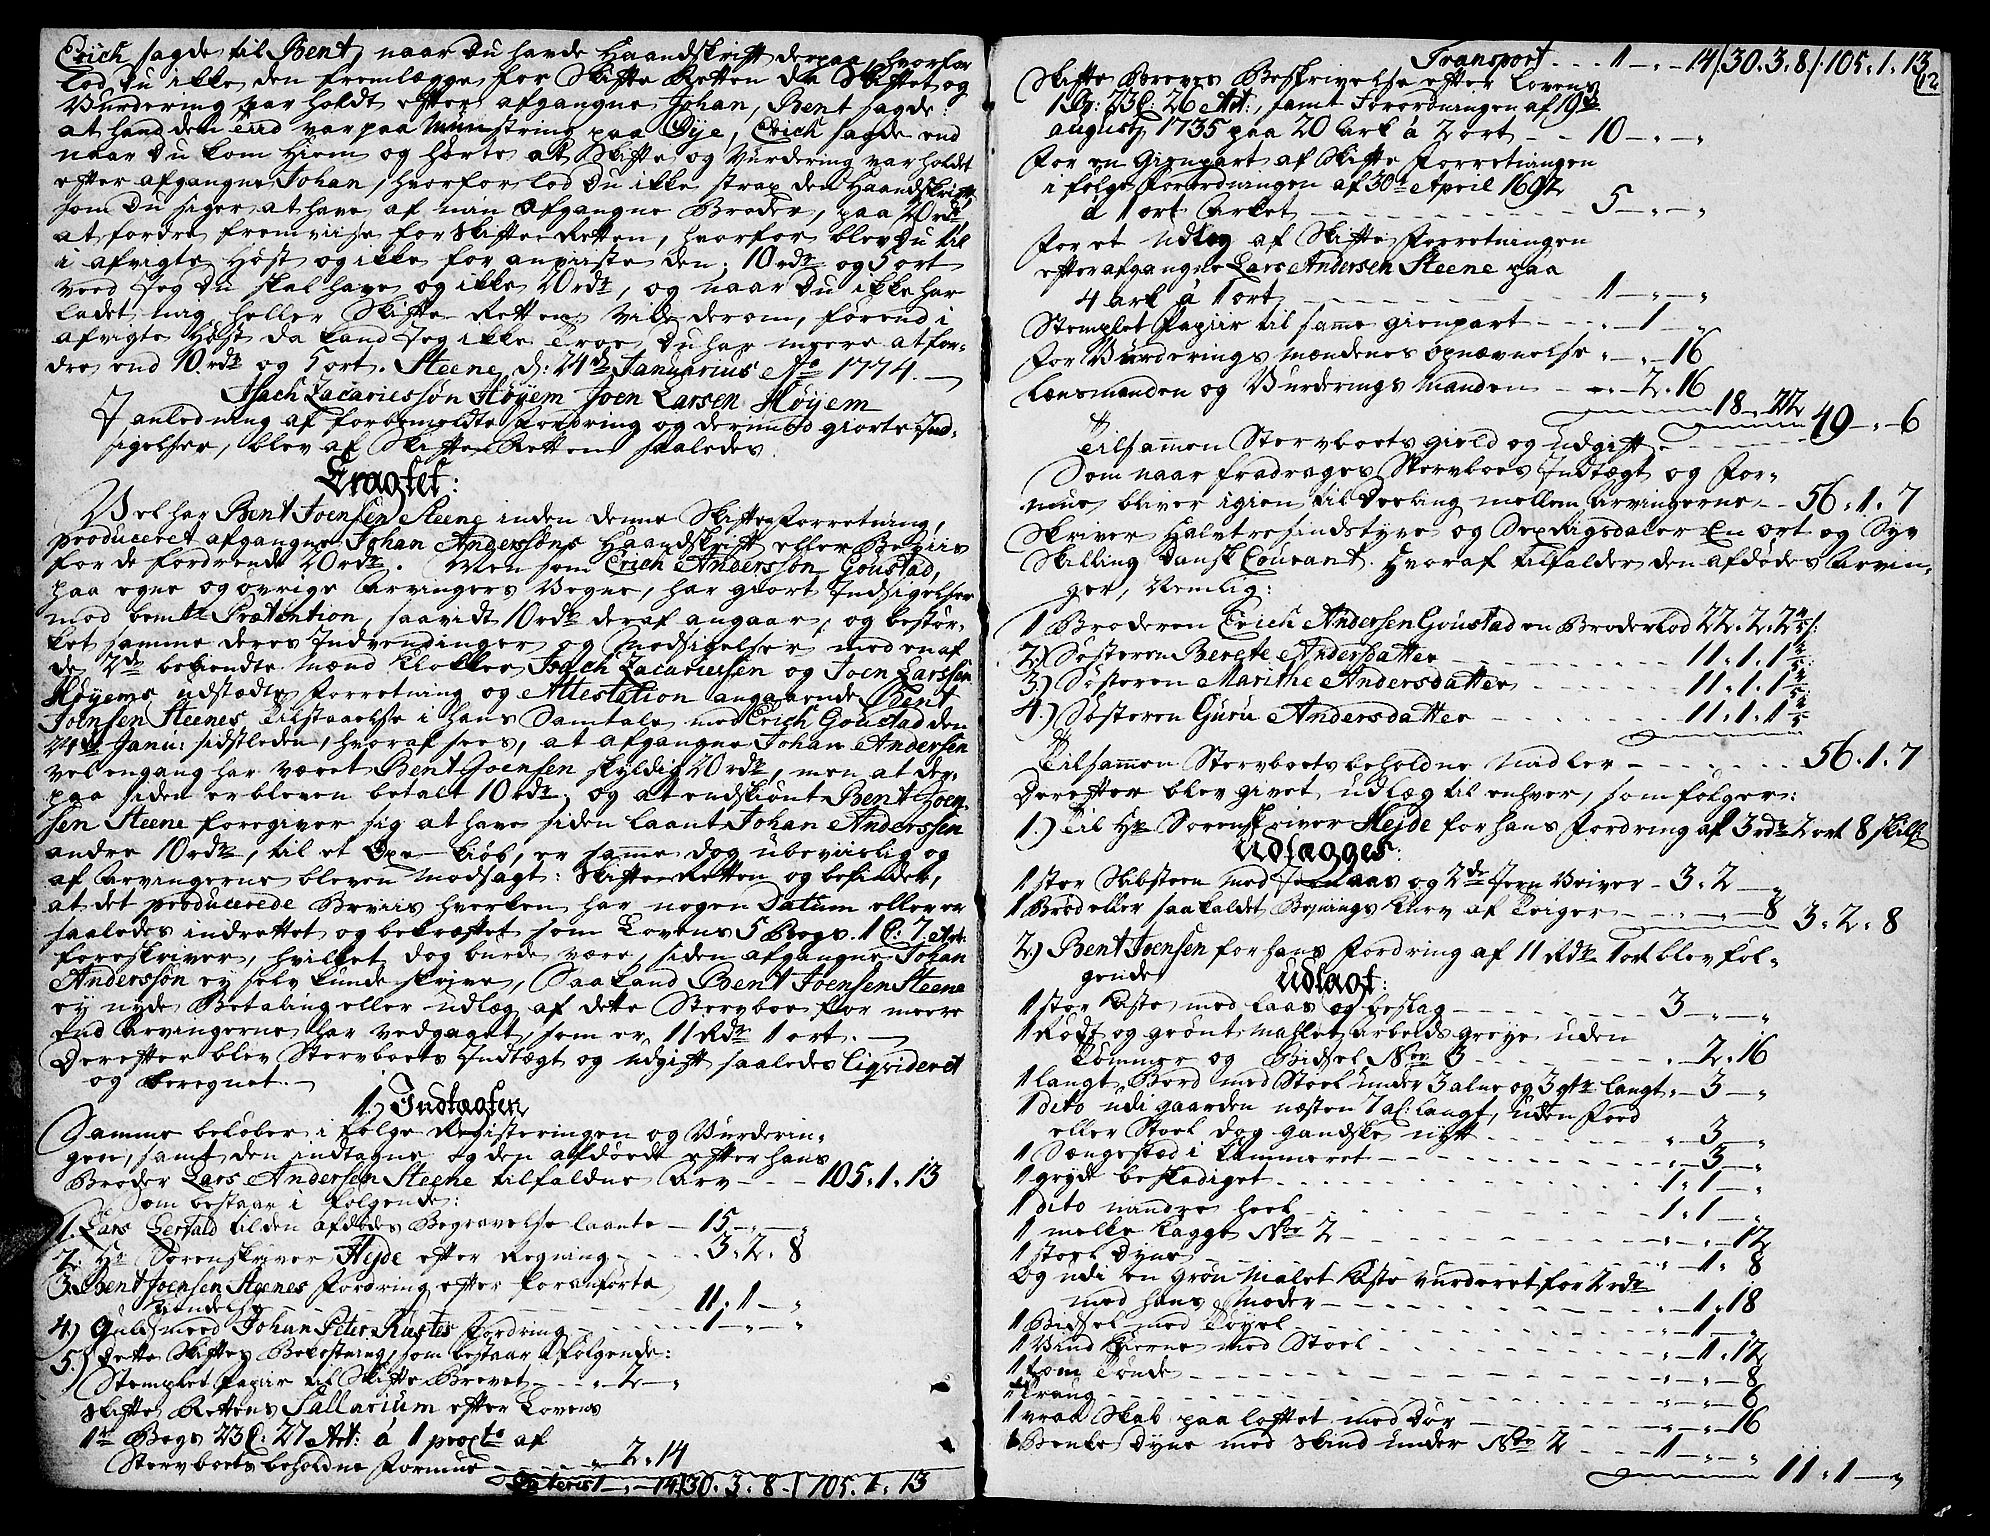 Erich sagde til Bent, naar Du havde Haandskrift derpaa, hvorfor
lod du ikke den fremlægge for Skifte Retten da Skiftet og
Vurdering var holdt efter afgangne Johan, Bent sagde
at hand den tiid var paa Munstring paa Øye, Erich sagde end
naar Du kom hiem og hørte at Skifte og Vurdering var holdt
efter afgangne Johan, hvorfor lod Du ikke strax den Haandskrift
som Du siger at have af min afgangne Broder, paa 20 rdr
at fordre fremviise for Skifte Retten, hvorfor blev Du til
i afvigte Høst og ikke før anviiste den; 10 rdr og 5 ort
veed Jeg Du skal have og ikke 20 rdr, og naar Du ikke har
ladet mig heller Skifte Retten vide derom, førend i
afvigte Høst da kand Jeg ikke troe Du har meere at for-
dre end 10 rdr og 5 ort. Steene d: 24de Januarius Ao 1774.
Isach Zacariesson Høyem Joen Larsen Høyem
I anledning af forbemeldte Fordring og derimod giorte Ind-
sigelser, blev af Skifte Retten saaledes
Eragtet:
Vel har Bent Joensen Steene inden denne Skifte Forretning,
produceret afgangne Johan Anderssøns Haandskrift eller Beviis
for de fordrende 20 rdr. Men som Erich Andersson Goustad,
paa egne og øvrige Arvingers Vegne, har giort Indsigelser
mod bemte Prætention, saavidt 10 rdr deraf angaar, og bestør-
ket samme deres Indvendinger og Modsigelser med en af
de 2de bekiendte Mænd Klokker Isach Zacariesen og Joen Larssen
Høyems udstædte Forretning og Attestation angaaende Bent
Joensen Steenes Tilstaaelse i hans Samtale med Erich Goustad den
24de Janu: sidstleden, hvoraf sees, at afgangne Johan Andersen
vel engang har været Bent Joensen skyldig 20 rdr, men at der-
paa siden er bleven betalt 10 rdr, og at endskiønt Bent Joen-
sen Steene foregiver sig at have siden laant Johan Anderssen
andre 10 rdr, til et Øxe kiøb, er samme dog ubeviislig og
af Arvingerne bleven Modsagt: Skifte Retten og befinder,
at det producerede Beviis hverken har nogen Datum eller er
saaledes indrettet og bekræftet som Lovens 5 Bogs 1 C: 7 Art:
foreskriver, hvilket dog burde være, siden afgangne Johan
Andersson ey selv kunde skrive, Saa kand Bent Joensen Steene
ey nyde Betaling eller udlæg af dette Stervboe for meere
End Arvingerne har vedgaaet, som er 11 Rdr 1 ort.
Derefter blev Stervboets Indtægt og Udgift saaledes Liqvideret
og beregnet.
1) Indtægten
Samme beløber i følge Registeringen og Vurderin-
gen, samt den indtagne og den afdøede efter hans
Broder Lars Andersen Steene tilfaldne Arv - - - 105 . 1 . 13
Som bestaar i følgende:
1. Lars Gerstad til den afdødes Begravelse laante - 15 - " - "
2. Hr Sorenskriver Hejde efter Regning - - - 3 . 2 . 8
3. Bent Joensen Steenes fordring efter foranførte
Kiendelse - - - 11 . 1 - "
4.) Guldsmeed Johan Peter Rustes fordring - - - 1 - " - "
5.) Dette Skiftes Bekostning, som bestaar i følgende:
Stemplet Papiir til Skifte Brevet - - - " - 2 - "
Skifte Rettens Sallarium efter Lovens
1te Bogs 23 C: 27 Art: á 1 procto af
Stervboets beholdne Formue - - - " 2 . 14
Lateris 1 - " - 14 / 30 . 3 . 8 / 105 . 1 . 13
12
Transport - - - 1 - " - 14 / 30 . 3 . 8 / 105 . 1 . 13
Skifte Brevets Beskrivelse efter Lovens
1 B: 23 C: 26 Art:, samt Forordningen af 19de
augusty 1735 paa 20 Ark á 2 ort - - 10 - " - "
For en Gienpart af Skifte Forretningen
i følge Forordningen af 30te April 1692
á 1 ort Arket - - - 5 - " - "
For et Udlæg af Skifte Forretningen
efter afgangne Lars Andersen Steene paa
4 ark á 1 ort - - - 1 - " - "
Stemplet Papiir til samme gienpart - - - " - 1 - "
For Vurderings Mændenes opnævnelse " - " - 16
Lensmanden og Vurderings Manden - - " - 2 . 16
18 . 22 49 - " - 6
Tilsammen Stervboets gield og udgift - - -
Som naar fradrages Stervboets Indtægt og For-
mue bliver igien til Deeling mellem Arvingerne - - 56 . 1 . 7
Skriver Halvtresindstyve og Sex Rigsdaler En ort og Syv
Skilling Dansk Courant. Hvoraf tilfalder den afdødes Arvin-
ger, Nemlig:
1 Broderen Erich Andersen Goustad en Broderlod 22 . 2 . 2 4/5
2.) Søsteren Berete Andersdatter - - - 11 . 1 . 1 2/5
3.) Søsteren Marithe Andersdatter - - - 11 . 1 . 1 2/5
4.) Søsteren Guru Andersdatter - - - 11 . 1 . 1 2/5
Tilsammen Stervboets beholdne Midler - - - 56 . 1 . 7
Derefter blev givet udlæg til enhver, som følger:
1.) Til Hr Sorenskriver Hejde for hans Fordring af 3 rdr 2 ort 8 skill
Udlægges:
1 stor Slibsteen med og 2de Jern Veiver - 3 . 2 - "
1 Brød eller saakaldet Kurv af Teiger - - - " - " - 8 3 . 2 . 8
2.) Bent Joensen for hans Fordring af 11 Rdr 1 ort blev føl-
gende Udlagt:
1 stor Kiste med Laas og beslag - - - 3 - " - "
1 Rødt og grønt Mahlet arbeids greye uden
Tømmer og Bidsel No 3 - - - " - 2 . 16
1 langt Bord med Stoel under 3 alne og 3 qtr langt " - 3 - "
1 dito udi gaarden næsten 7 al: langt, uden Foed
eller Stoel dog gandske nytt - - - " - 3 - "
1 Sængested i Kammeret - - - " - 3 - "
1 gryde beskadiget - - - " - 1 - "
1 dito mindre heel - - - " - 1 - "
1 melke Kagge No 2 - - - " - " - 12
1 stoel Dyne - - - " - 1 . 8
Og udi en grøn Malet Kiste vurderet for 2 rdr
med hans Moder - - - " - 1 . 18
1 Bidsel med Tøyel - - - " - 1 - "
1 Vind Kierne med Stoel - - - " - 1 . 12
1 tom Tønde - - - " - " - 8
1 Traug - - - " - " - 6
1 vraa Skab paa loftet med Dør - - - " - " - 16
1 Benke Dyne med skind under No 2 - - - 1 - " - "
11 . 1 - "